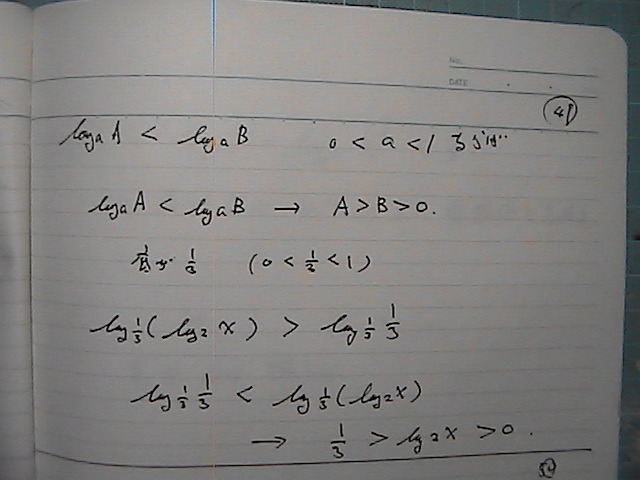 No.
DATE
48
log_a A < log_a B 0 < a < 1 ならば…
log_a A < log_a B → A > B > 0.
底が 1/3 (0 < 1/3 < 1)
log_{1/3}(log_2 x) > log_{1/3} 1/3
log_{1/3} 1/3 < log_{1/3}(log_2 x)
→ 1/3 > log_2 x > 0.